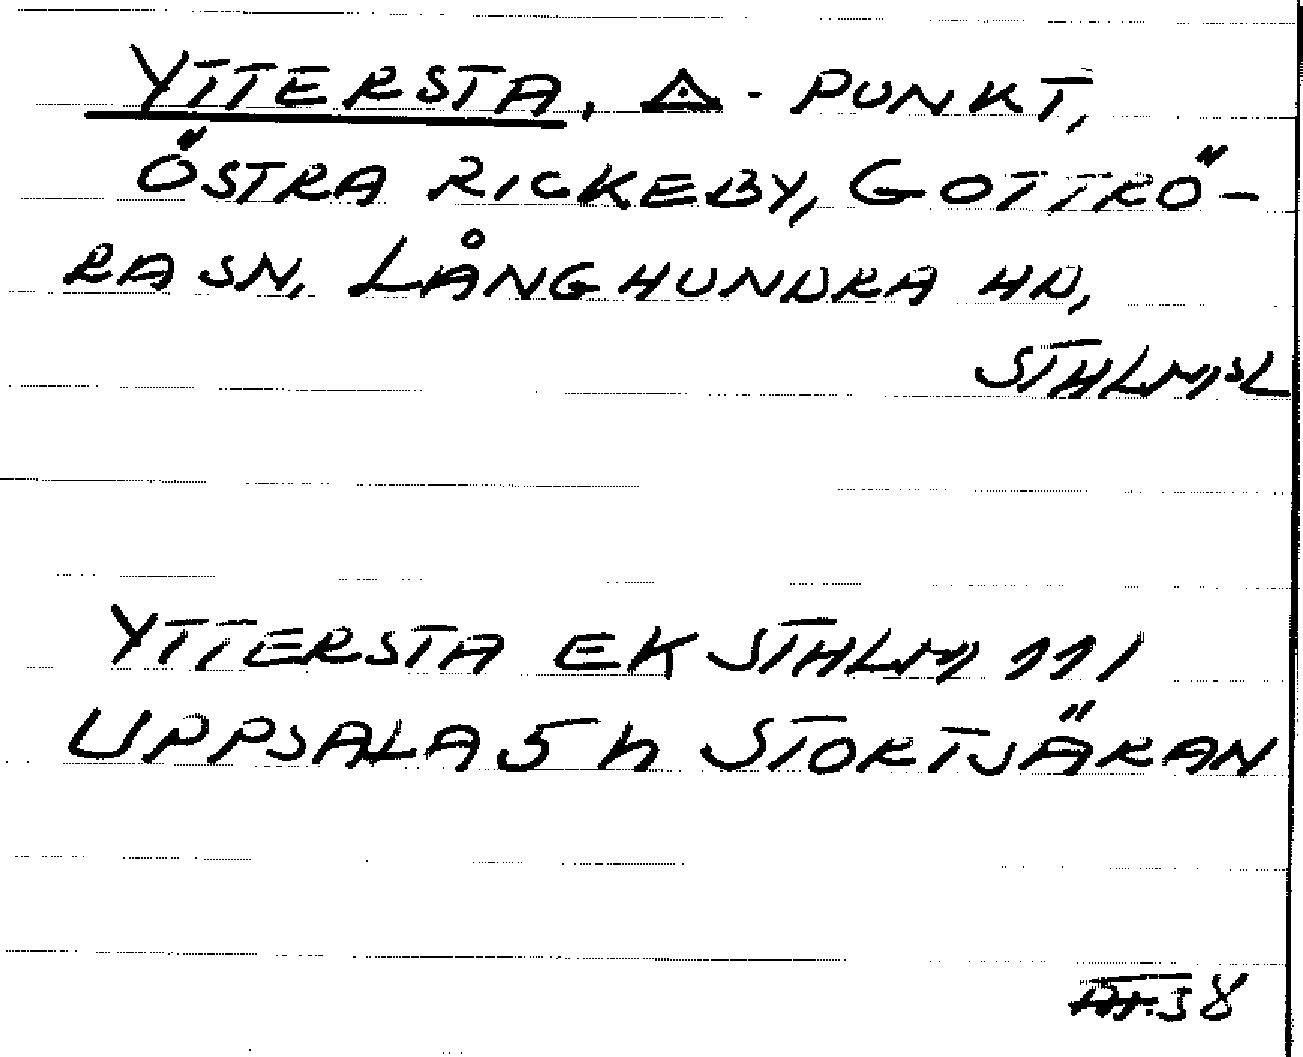 YTTERSTA, △-PUNKT,
ÖSTRA RICKEBY, GOTTRÖ-
RA SN, LÅNGHUNDRA HD,
STHLMSL
YTTERSTA EK STHLM 111
UPPSALA 5 h STORTJÄRAN
38